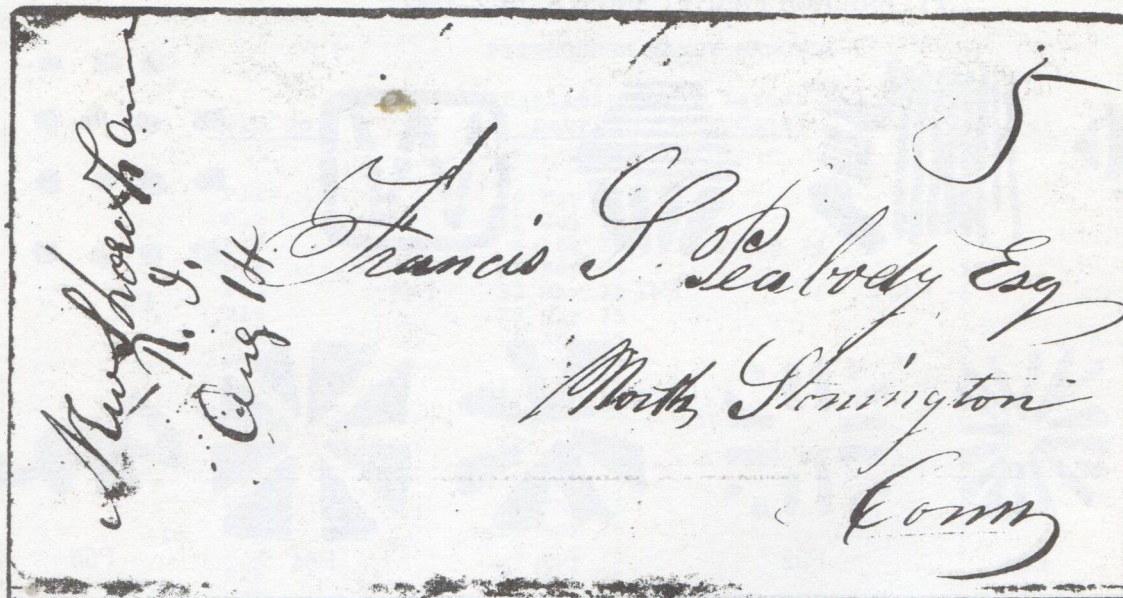 New Shoreham
R. I.
Aug 14
5
Francis S. Peabody Esq
North Stonington
Conn